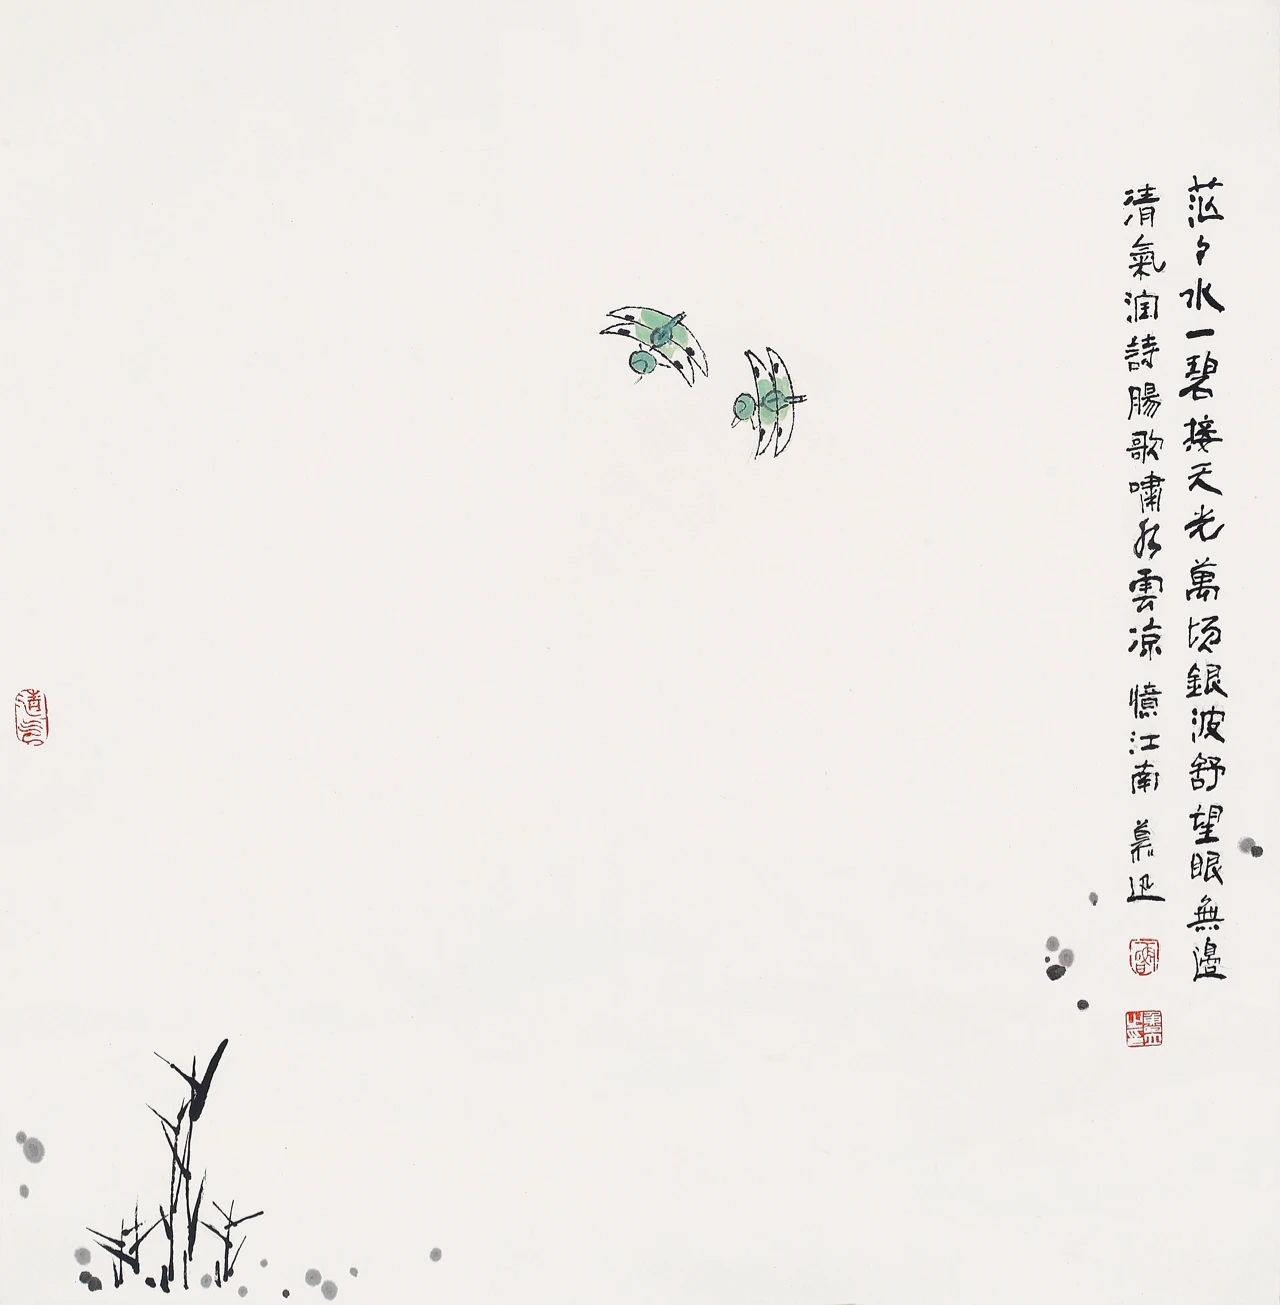 茫々水一碧接天光萬頃銀波舒望眼無邊
清氣润詩腸歌嘯水雲凉 憶江南 慕迅